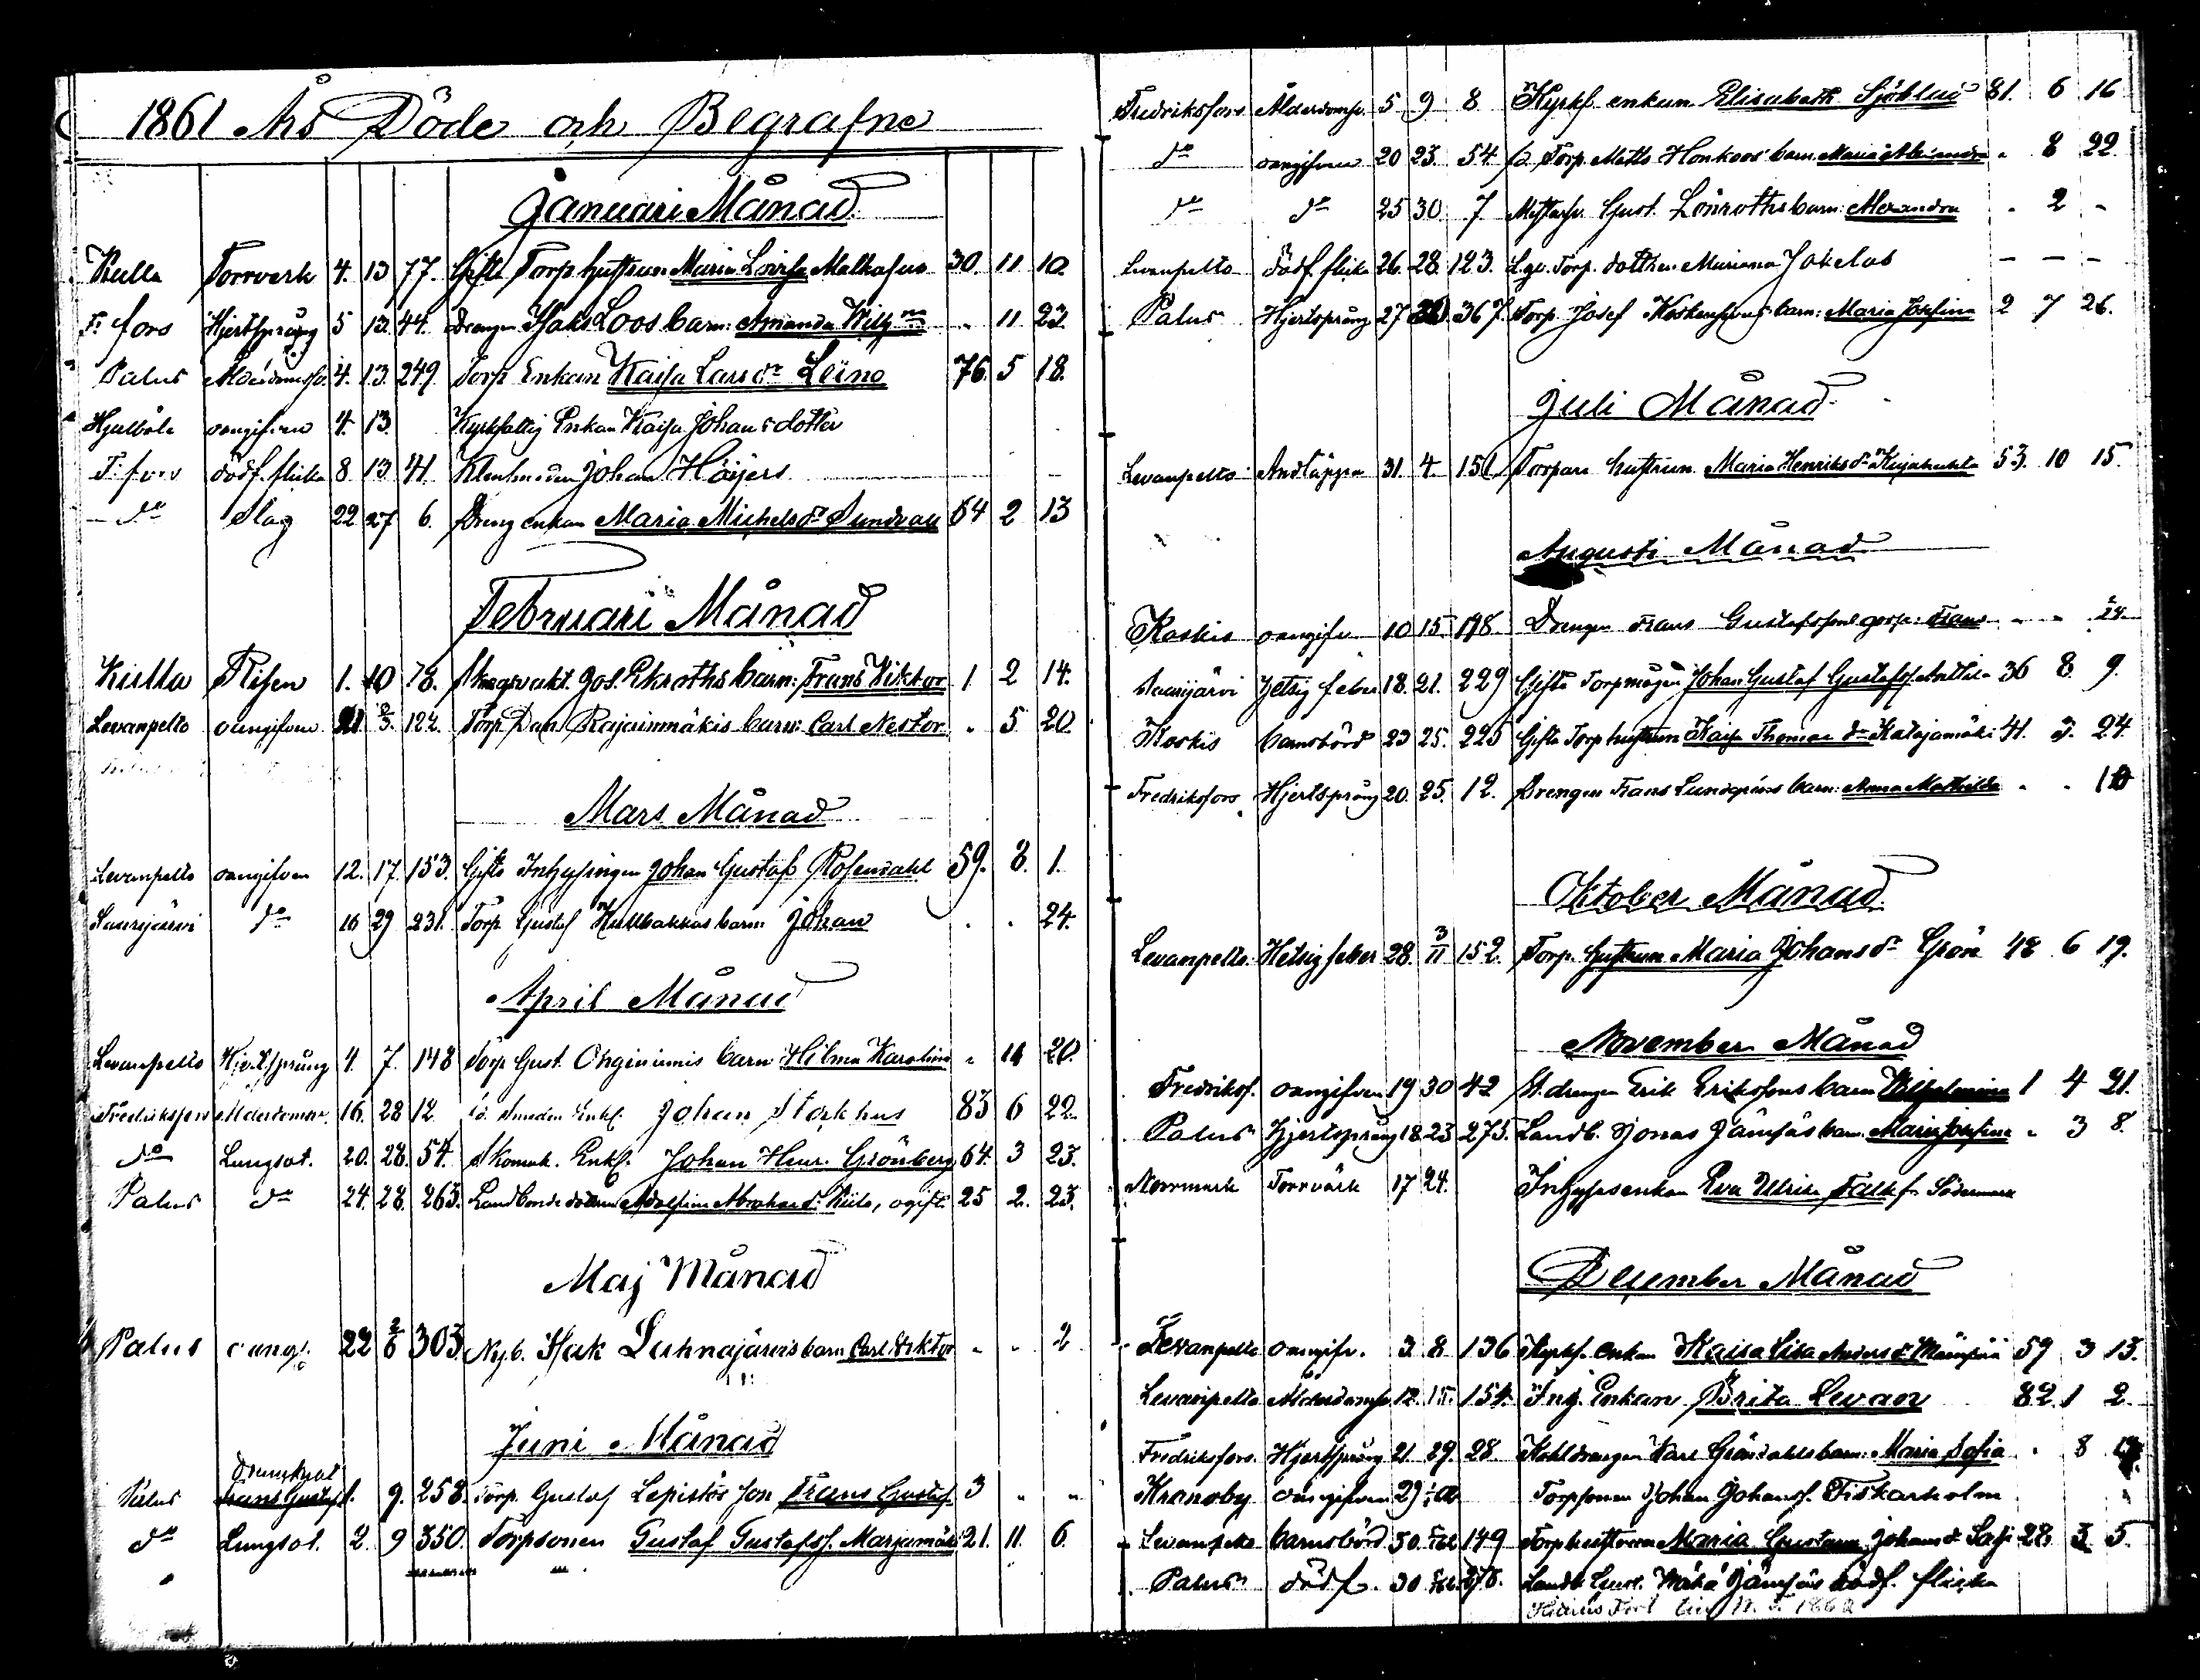 1861 Års Döde och Begrafne
Januari Månad
Kulla Torrverk 4. 13 77. Gifta Torp. hustrun Maria Lovisa Malkasus 30. 11 10
F. fors Hjertsprång 5 13. 44. Drängen Isaks Loos barn: Amanda Wilh:na " 11 23.
Palus Ålderdomsf. 4. 13. 249. Torp Enkan Kaisa Lars dr Leino 76. 5 18.
Hjulböle oangifven 4. 13. Kyrkfattig Enkan Kaisa Johansdotter
F. fors dödf. flicka 8 13 41. Johan Höijers
do Slag 22 27 6. Dreng enkan Maria Michels dr Sundvall 64 2 13
Februari Månad
Kulla Risen 1. 10 78. Skogsvakt. Jos. Ekroths barn: Frans Viktor 1 2 14.
Levanpelto oangifven 21 2/3. 122. Torp. Dan. Rajainmäkis barn: Carl Nestor " 5 20
Mars Månad
Levanpelto oangifven 12. 17. 153. Gifte Inhysingen Johan Gustaf Rosendahl 59. 8. 1.
Saarijärvi do 16 29 231. Torp. Gustaf barn: Johan . . 24.
April Månad
Levanpelto Hjertsprång 4. 7. 148 Torp Gust. barn Hilma Karolina " 11 20.
Fredriksfors Ålderdomsv. 16. 28 12 Smeden Enkl. Johan Storkhus 83 6 22.
do Lungsot. 20. 28. 54. Skomak. Enkl. Johan Henr. Grönberg 64. 3 23.
Palus do 24. 28. 263. Landbonde dottern Adolfina Abrahams dr Kiilo, ogift. 25 2. 23.
Maj Månad
Palus oangf. 22 2/6 303. Nyb. Isak Luhnajärvis barn Carl Viktor " " 2
Juni Månad
Drunknat
Palus Frans Gustaf 1. 9. 258. Torp. Gustaf Lepistös son Frans Gustaf. 3 " "
do Lungsot. 2. 9 350. Torpsonen Gustaf Gustafsf. Marjamäki 21. 11. 6.
Fredriksfors Ålderdomsv. 5 9 8 Kyrkf. enkan Elisabeth Sjöblad 81. 6 16
do oangifven 20 23. 54 Torp. Matts Honkoos barn. Maria Alexandra " 8 22.
do do 25 30. 7 Gust. Lönroths barn: Alexandra . 2 -
Levanpelto dödf. flicka 26. 28. 123. Torp. dottren Mariana Jokelas - - -
Palus Hjertsprång 27 30. 367. Torp. Josef barn: Maria Josefina 2 7 26.
Juli Månad
Levanpelto Andtäppa 31. 4. 151 Torpare hustrun Maria Henriks dr 53. 10 15.
Augusti Månad
Koskis oangifv. 10 15 198 Drengen Frans Gustafssons Frans - - 24.
Saarijärvi Hetsig feber 18. 21. 229 Gifta Torpmågen Johan Gustaf Gustafsf. Anttila 36 8. 9.
Koskis barnsbörd 23 25. 225 Gifta Torphustrun Kaisa Thomas dr Katajamäki 41. 3. 24.
Fredriksfors Hjertsprång 20. 25. 12. Drengen Frans Lundqvists barn: Anna Mathilda . . 10
Oktober Månad
Levanpelto. Hetsig feber 28. 3/11 152. Torp. hustrun Maria Johans dr Grön 48 6 19.
November Månad
Fredriksf. oangifven 19 30 42 St.drengen Erik Erikssons barn Wilhelmina 1 4 21.
Palus Hjertsprång 18. 23 275. Landb. Jonas Jämsäs barn. Maria Josefina " 3 8.
Norrmark Torrvärk 17 24. Inhysenkan Eva Ulrika Falk fr. Södermark
December Månad
Levanpelto oangifv. 3 8 136 Kyrkf. enkan Kaisa Lisa Anders dr Mäenpää 59 3 13.
Levanpelto Ålderdomsv. 12. 15. 154. Inh. Enkan Brita Levan 82. 1 2
Fredriksfors. Hjertsprång 21. 29. 28. Kohldrengen Karl Gröndahls barn: Maria Sofia . 8
Kranoby oangifven 29 Torpsonen Johan Johansf. Fiskarholm
Levanpelto barnsbörd 30. 149 Torphustrun Maria Gustava Johans dr 28. 3. 5.
Palus dödf. 30 Landb. Gust. Wähä Jämsäs dödf. flicka